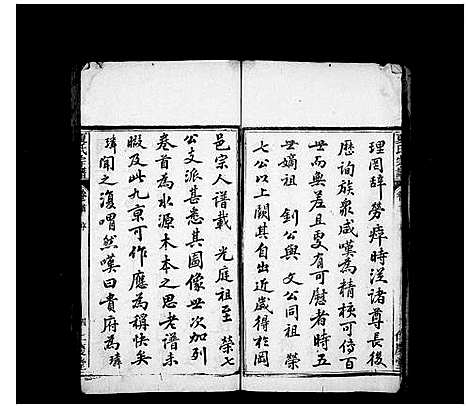 理罔辞勞瘁時從諸尊長後
歷詢族衆咸嘆為精核可傳百
世而無差且更有可慰者時五
世嫡祖 釗公與 文公同祖 榮
七公以上闕其自出近歲得於岡
邑宗人譜載 光庭祖至 榮七
公支派甚悉其圖像世次加列
卷首為水源木本之思老譜未
暇及此九京可作應為稱快矣
璘聞之復喟然嘆曰貴府為璘
氏宗譜